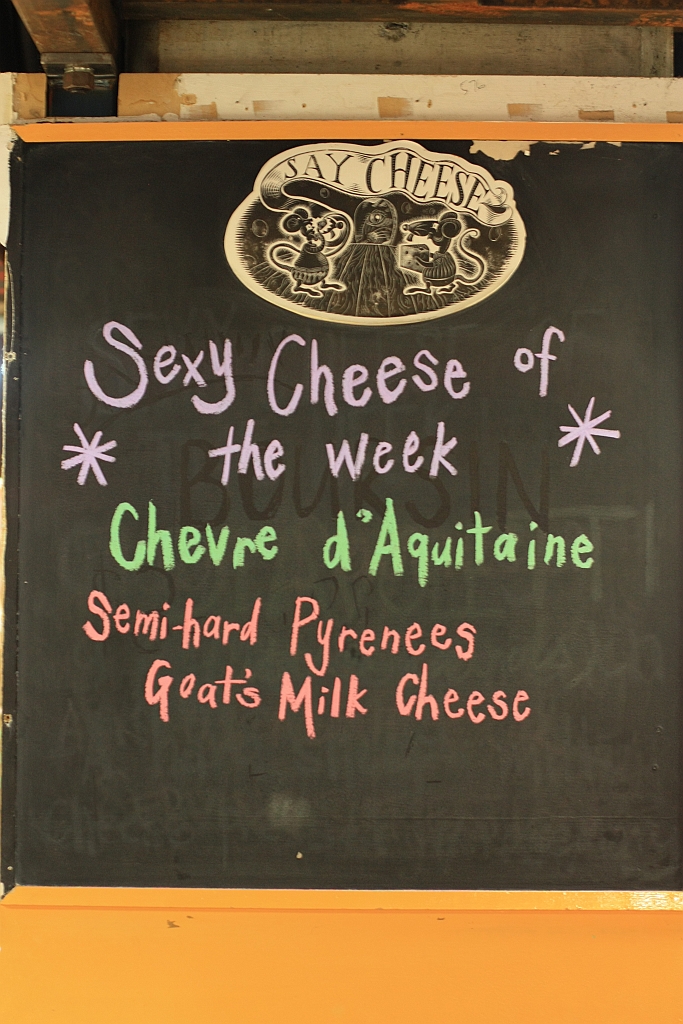 SAY CHEESE
Sexy Cheese of
* the week *
Chevre d'Aquitaine
Semi-hard Pyrenees
Goat's Milk Cheese
BOURSIN